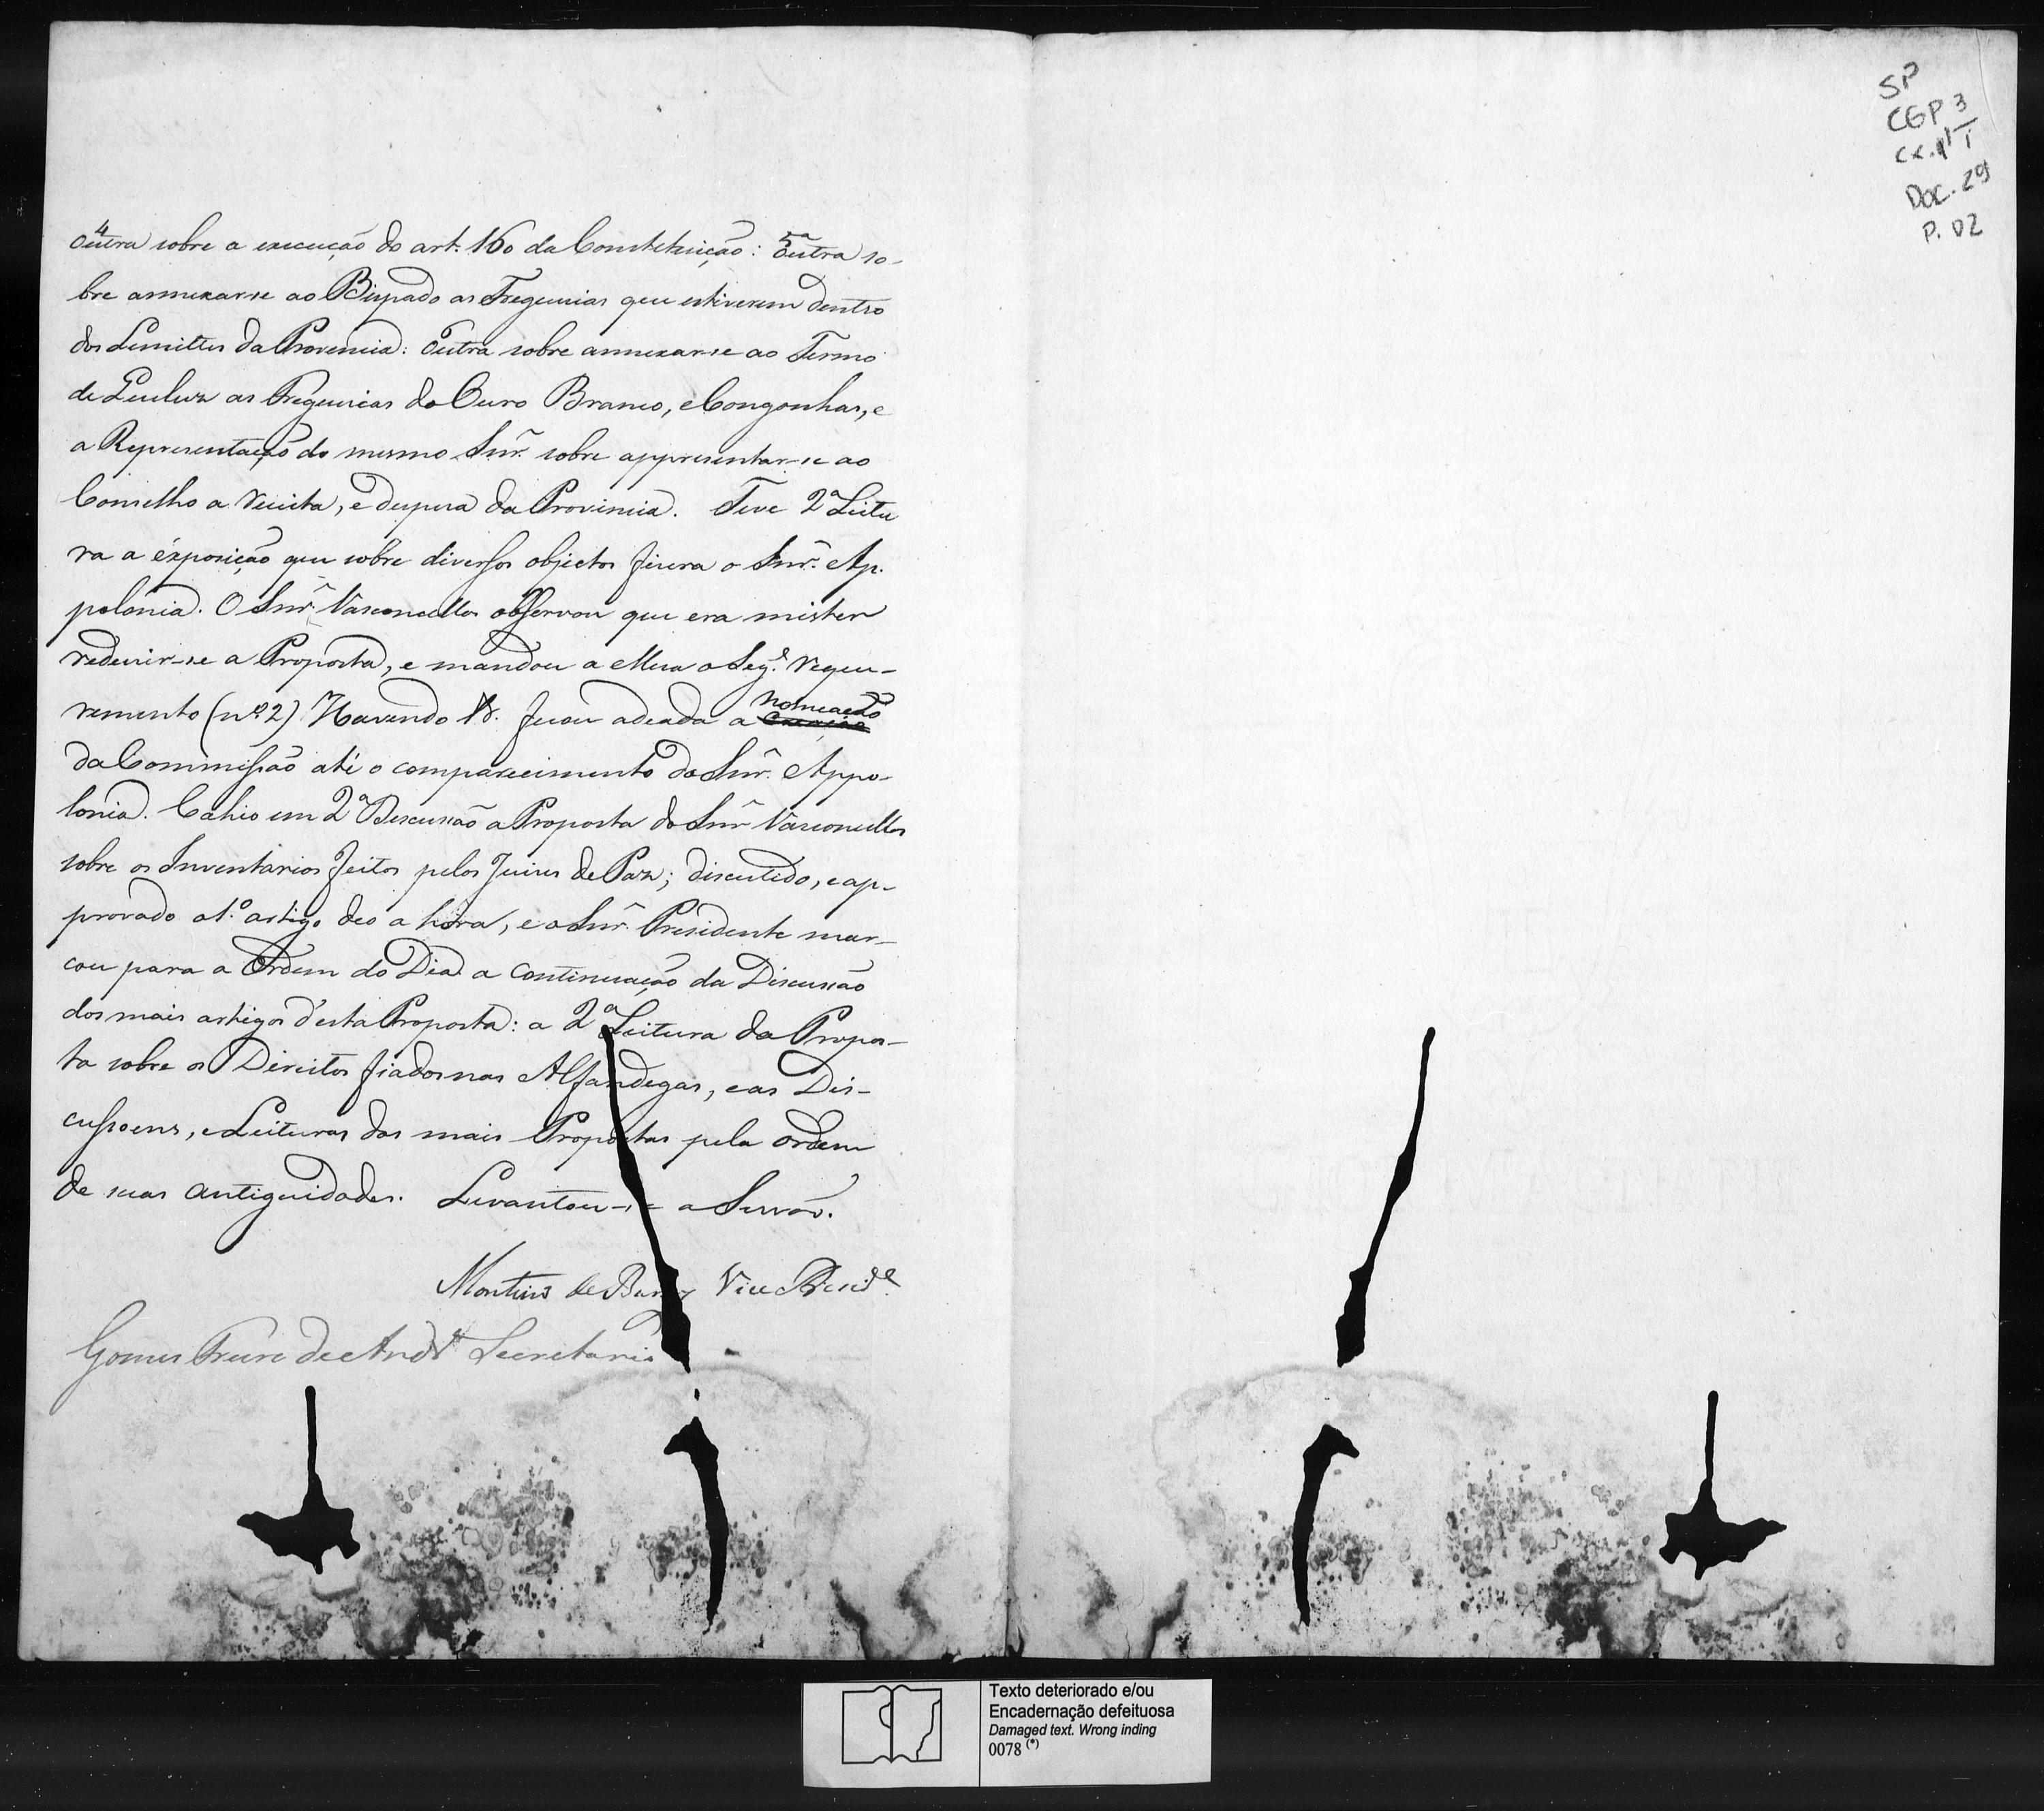 4
outra sobre a execução do art. 160 da Constetuição: 5ª outra so-
bre annexar-se ao Bispado as Freguezias que estiverem dentro
dos Lemittes da Provencia: 6 outra sobre annexar-se ao Termo
de Queluz as Freguezias do Ouro Branco, e Congonhas, e
a Representação do mesmo Snr. sobre appresentar-se ao
Conselho a receita, e despeza da Provincia. Teve 2ª Leitu
ra a éxposição que sobre diversos objectos fizera o Snr. Ap-
polonia. O Snr. Vasconcellos observou que era mister
reduzir-se a Proposta, e mandou a Meza o Seg.e reque-
remento (nº 2) Havendo ficou adeada a nomeação
da Commissão até o comparecimento do Snr. Appo-
lonia. Cahio em 2ª Discussão a Proposta do Snr Vasconcellos
sobre os Inventarios feitos pelos Juizes de Paz; discutido, e ap-
provado o 1.º artigo deo a hora, e o Snr. Presidente mar-
cou para a Ordem do Dia a continuação da Discussão
dos mais artigos d'esta Proposta: a 2ª Leitura da Propos-
ta sobre os Direitos fiados nas Alfandegas, e as Dis-
cussoens, e Leituras das mais Propostas pela ordem
de suas antiguidades. Levantou-se a Sessão.
Monteiro de Barros Vice Presid.e
Gomes Freire de Andr.e Secretario
SP
CGP 3
cx. 1
Doc. 29
P. 02
Texto deteriorado e/ou
Encadernação defeituosa
Damaged text. Wrong inding
0078 (*)